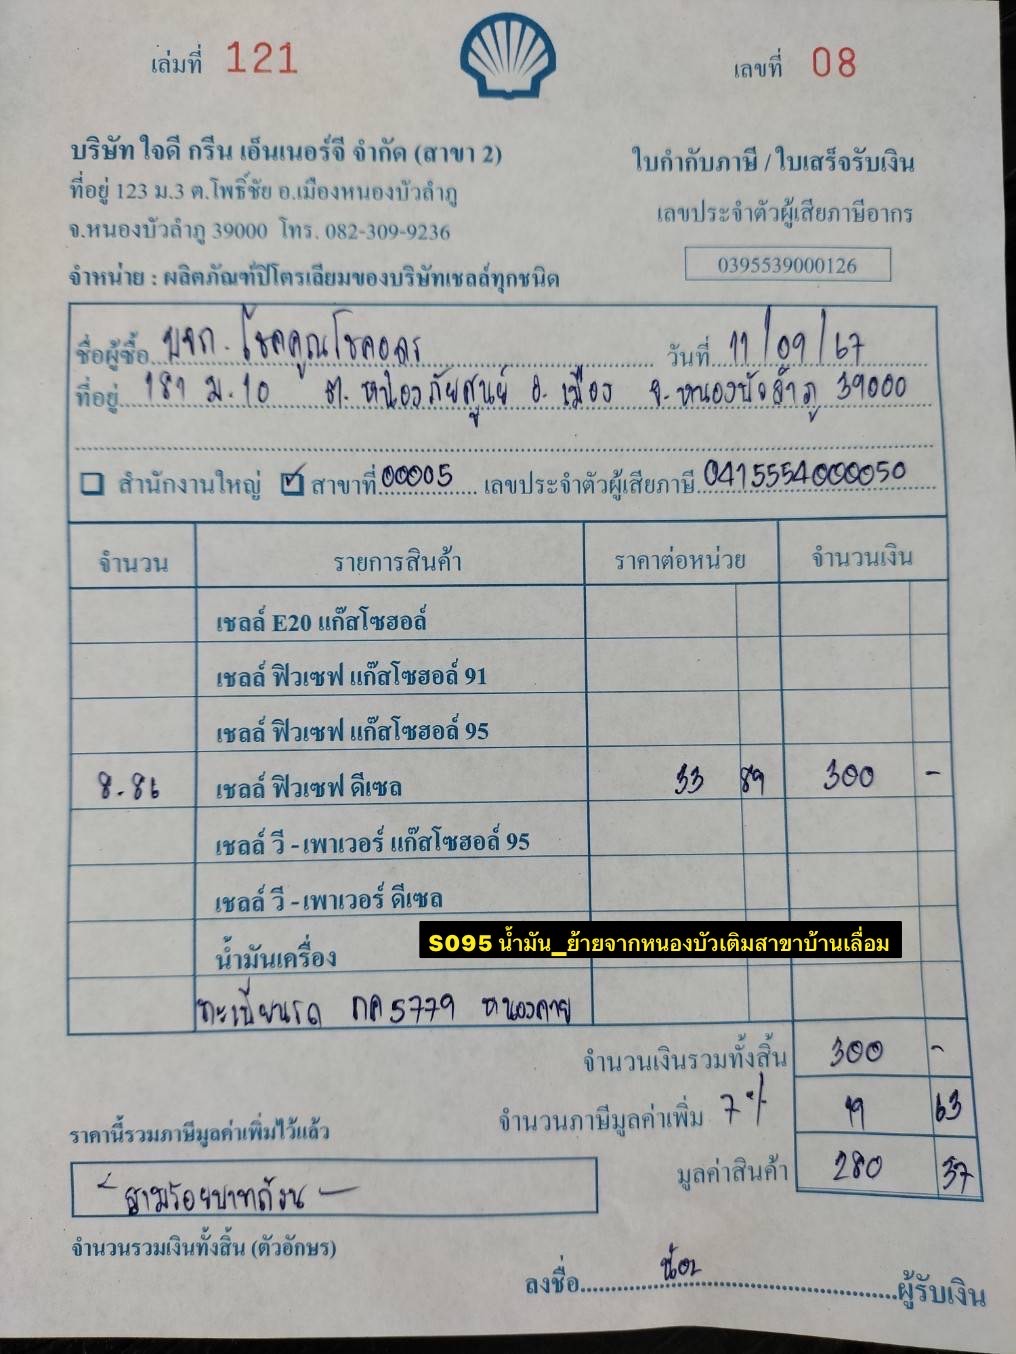 เล่มที่ 121
เลขที่ 08
บริษัท ใจดี กรีน เอ็นเนอร์จี จำกัด (สาขา 2)
ที่อยู่ 123 ม.3 ต.โพธิ์ชัย อ.เมืองหนองบัวลำภู
จ.หนองบัวลำภู 39000 โทร. 082-309-9236
จำหน่าย : ผลิตภัณฑ์ปิโตรเลียมของบริษัทเชลล์ทุกชนิด
ใบกำกับภาษี / ใบเสร็จรับเงิน
เลขประจำตัวผู้เสียภาษีอากร
0395539000126
ชื่อผู้ซื้อ บจก. โชคคูณโชคอลร วันที่ 11/09/67
ที่อยู่ 181 ม.10 ต. หนองภัยศูนย์ อ. เมือง จ. หนองบัวลำภู 39000
สำนักงานใหญ่ สาขาที่ 00005 เลขประจำตัวผู้เสียภาษี 0415554000050
จำนวน รายการสินค้า ราคาต่อหน่วย จำนวนเงิน
เชลล์ E20 แก๊สโซฮอล์
เชลล์ ฟิวเซฟ แก๊สโซฮอล์ 91
เชลล์ ฟิวเซฟ แก๊สโซฮอล์ 95
8.86 เชลล์ ฟิวเซฟ ดีเซล 33 89 300 -
เชลล์ วี - เพาเวอร์ แก๊สโซฮอล์ 95
เชลล์ วี - เพาเวอร์ ดีเซล
น้ำมันเครื่อง
S095 น้ำมัน_ย้ายจากหนองบัวเติมสาขาบ้านเลื่อม
ทะเบียนรถ กค 5779 หนองคาย
จำนวนเงินรวมทั้งสิ้น 300 -
จำนวนภาษีมูลค่าเพิ่ม 7% 19 63
ราคานี้รวมภาษีมูลค่าเพิ่มไว้แล้ว
มูลค่าสินค้า 280 37
- สามร้อยบาทถ้วน -
จำนวนรวมเงินทั้งสิ้น (ตัวอักษร)
ลงชื่อ ผู้รับเงิน